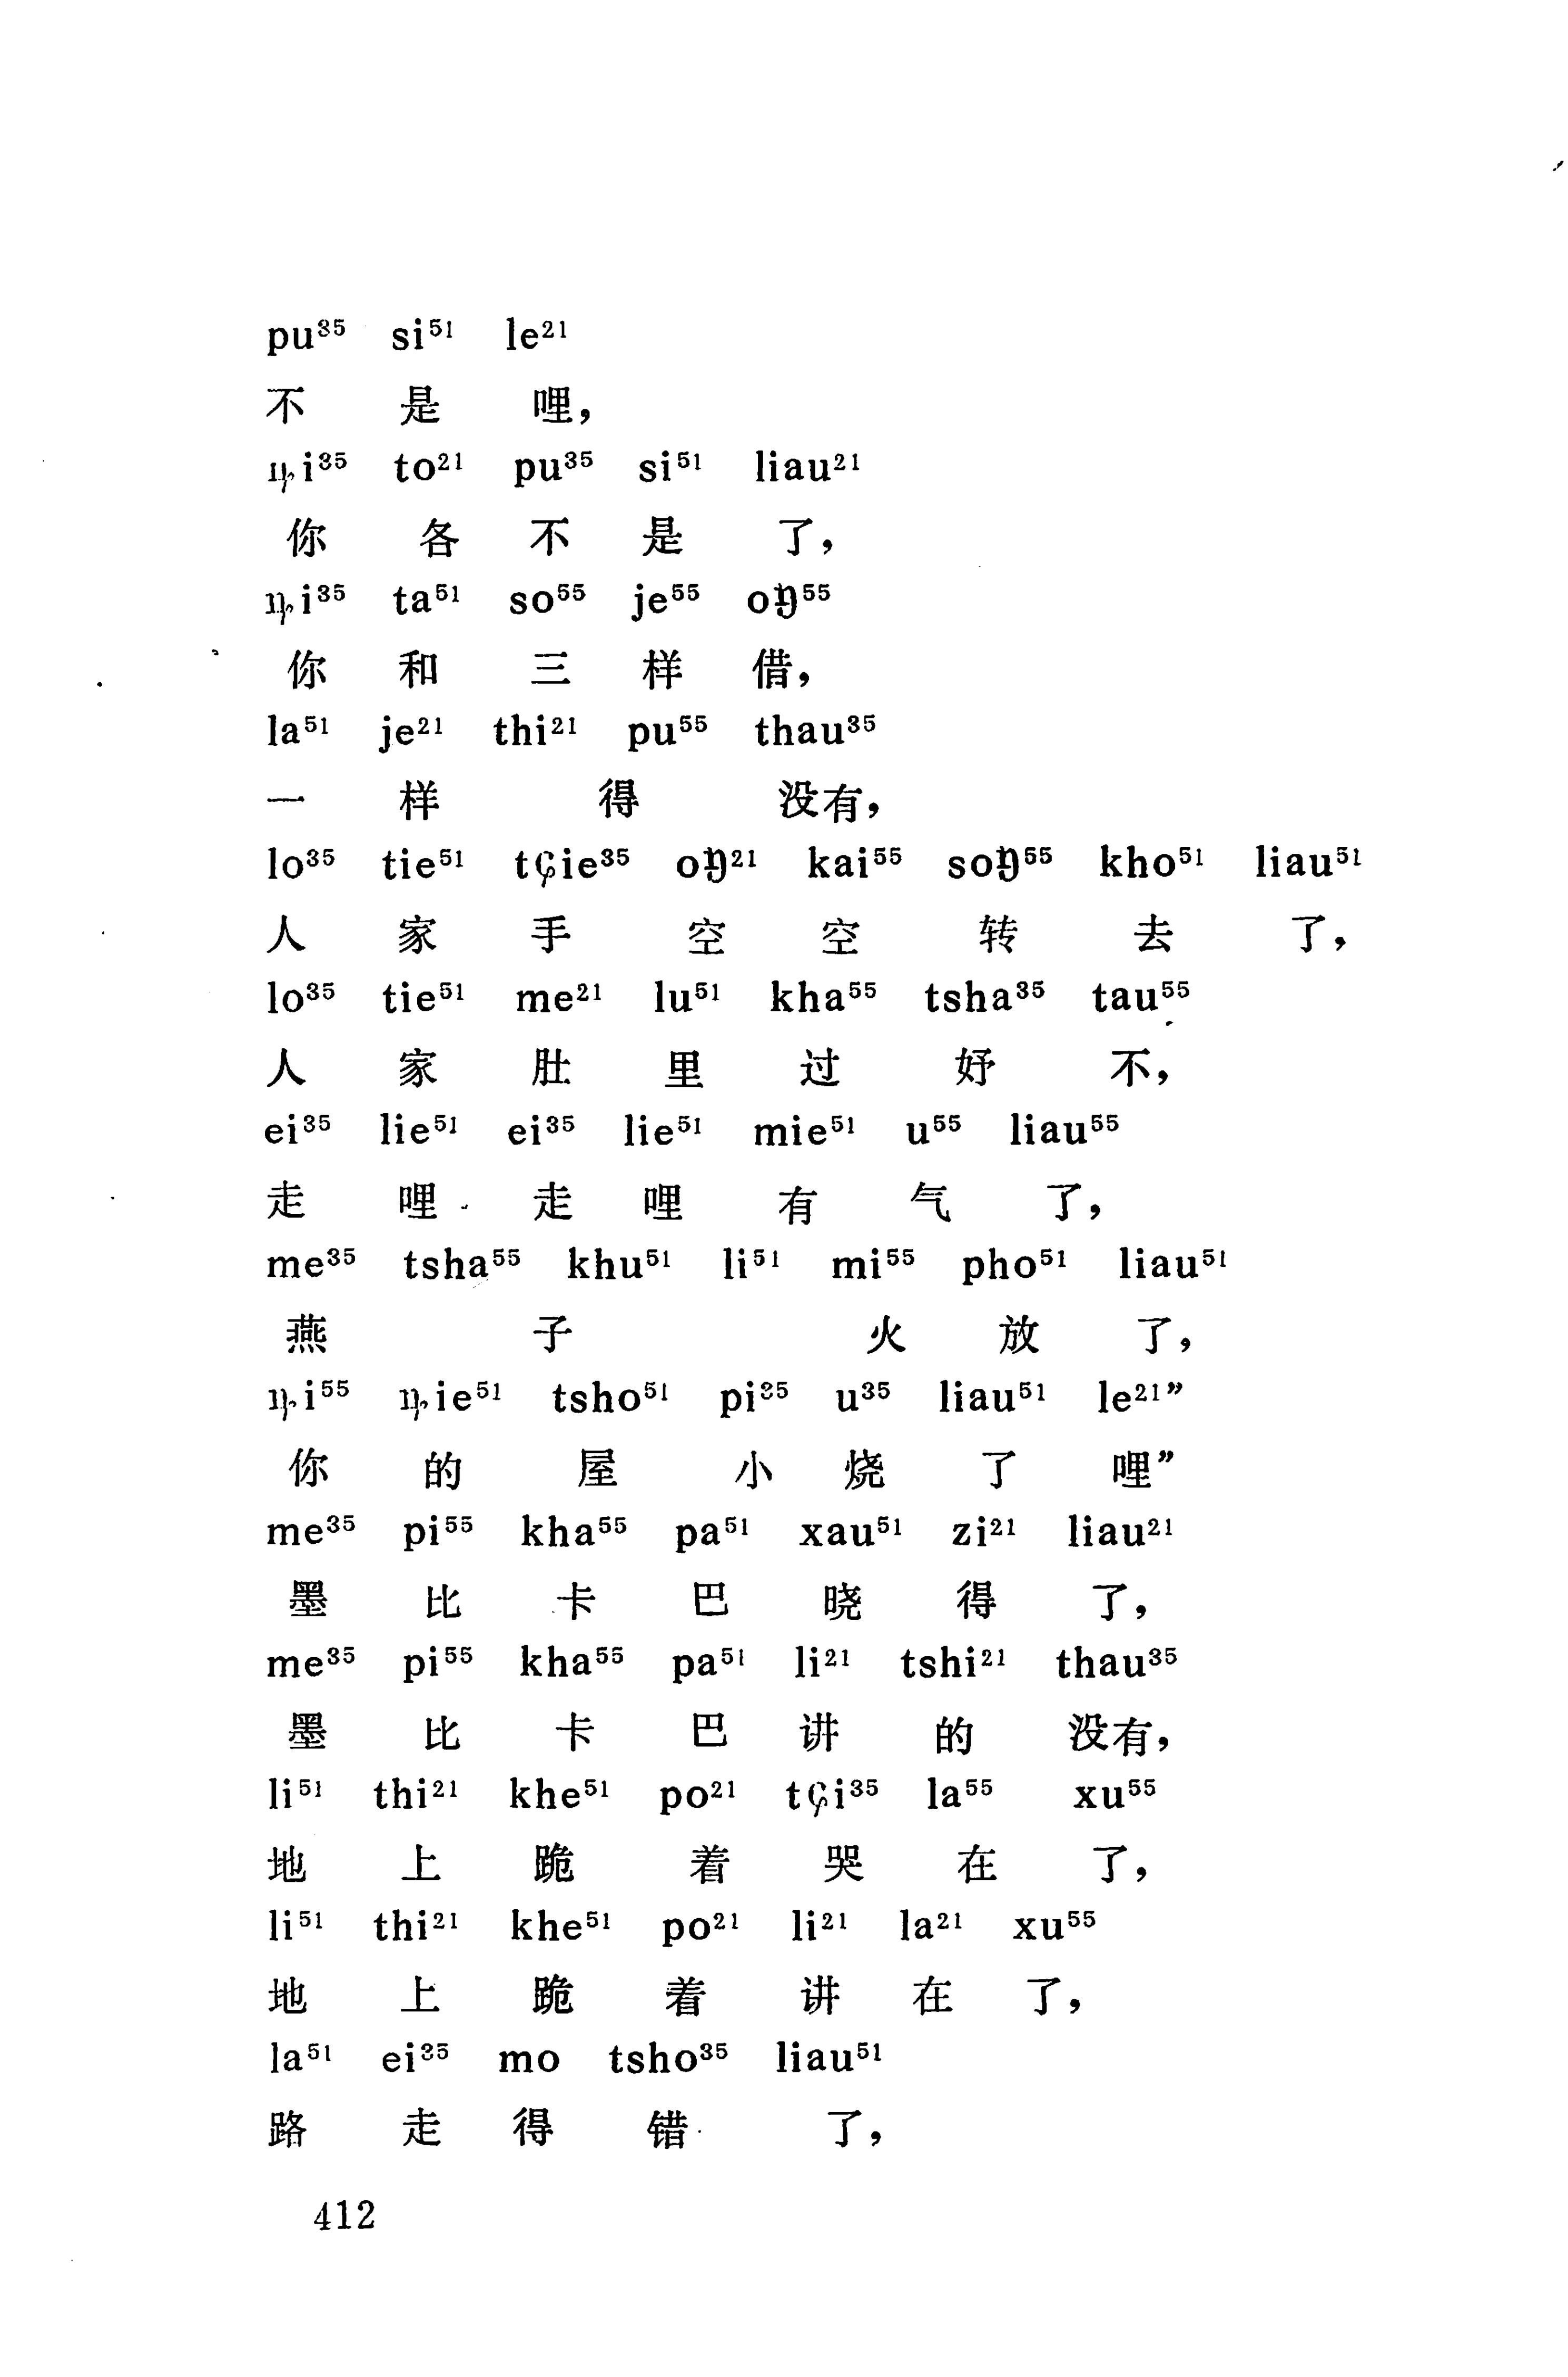 pu³⁵ si⁵¹ le²¹
不 是 哩，
ȵi³⁵ to²¹ pu³⁵ si⁵¹ liau²¹
你 各 不 是 了，
ȵi³⁵ ta⁵¹ so⁵⁵ je⁵⁵ oŋ⁵⁵
你 和 三 样 借，
la⁵¹ je²¹ thi²¹ pu⁵⁵ thau³⁵
一 样 得 没有，
lo³⁵ tie⁵¹ tɕie³⁵ oŋ²¹ kai⁵⁵ soŋ⁵⁵ kho⁵¹ liau⁵¹
人 家 手 空 空 转 去 了，
lo³⁵ tie⁵¹ me²¹ lu⁵¹ kha⁵⁵ tsha³⁵ tau⁵⁵
人 家 肚 里 过 好 不，
ei³⁵ lie⁵¹ ei³⁵ lie⁵¹ mie⁵¹ u⁵⁵ liau⁵⁵
走 哩 走 哩 有 气 了，
me³⁵ tsha⁵⁵ khu⁵¹ li⁵¹ mi⁵⁵ pho⁵¹ liau⁵¹
燕 子 火 放 了，
ȵi⁵⁵ ȵie⁵¹ tsho⁵¹ pi³⁵ u³⁵ liau⁵¹ le²¹”
你 的 屋 小 烧 了 哩”
me³⁵ pi⁵⁵ kha⁵⁵ pa⁵¹ xau⁵¹ zi²¹ liau²¹
墨 比 卡 巴 晓 得 了，
me³⁵ pi⁵⁵ kha⁵⁵ pa⁵¹ li²¹ tshi²¹ thau³⁵
墨 比 卡 巴 讲 的 没有，
li⁵¹ thi²¹ khe⁵¹ po²¹ tɕi³⁵ la⁵⁵ xu⁵⁵
地 上 跪 着 哭 在 了，
li⁵¹ thi²¹ khe⁵¹ po²¹ li²¹ la²¹ xu⁵⁵
地 上 跪 着 讲 在 了，
la⁵¹ ei³⁵ mo tsho³⁵ liau⁵¹
路 走 得 错 了，
412